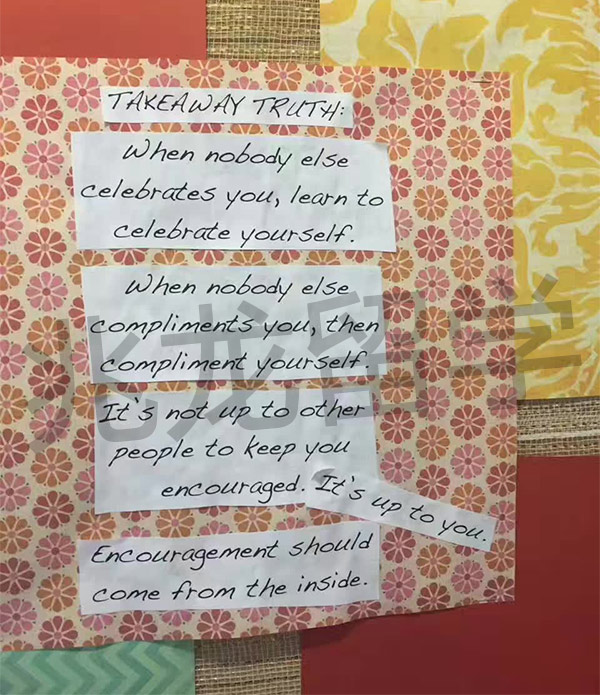 TAKEAWAY TRUTH:
When nobody else
celebrates you, learn to
celebrate yourself.
When nobody else
compliments you, then
compliment yourself.
It's not up to other
people to keep you
encouraged. It's up to you.
Encouragement should
come from the inside.
兆龙留学